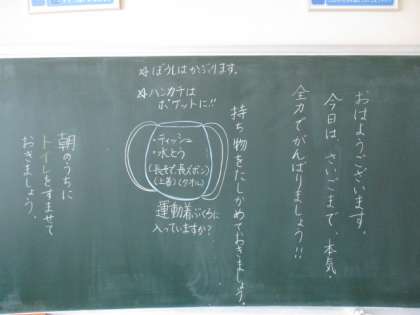 おはようございます。
今日は、さいごまで、本気・
全力でがんばりましょう!!
☆ぼうしはかぶります。
☆ハンカチは
ポケットに!!
持ち物をたしかめておきましょう。
・ティッシュ
・水とう
(長そで長ズボン)
(上着)(タオル)
運動着ぶくろに
入っていますか?
朝のうちに
トイレをすませて
おきましょう。